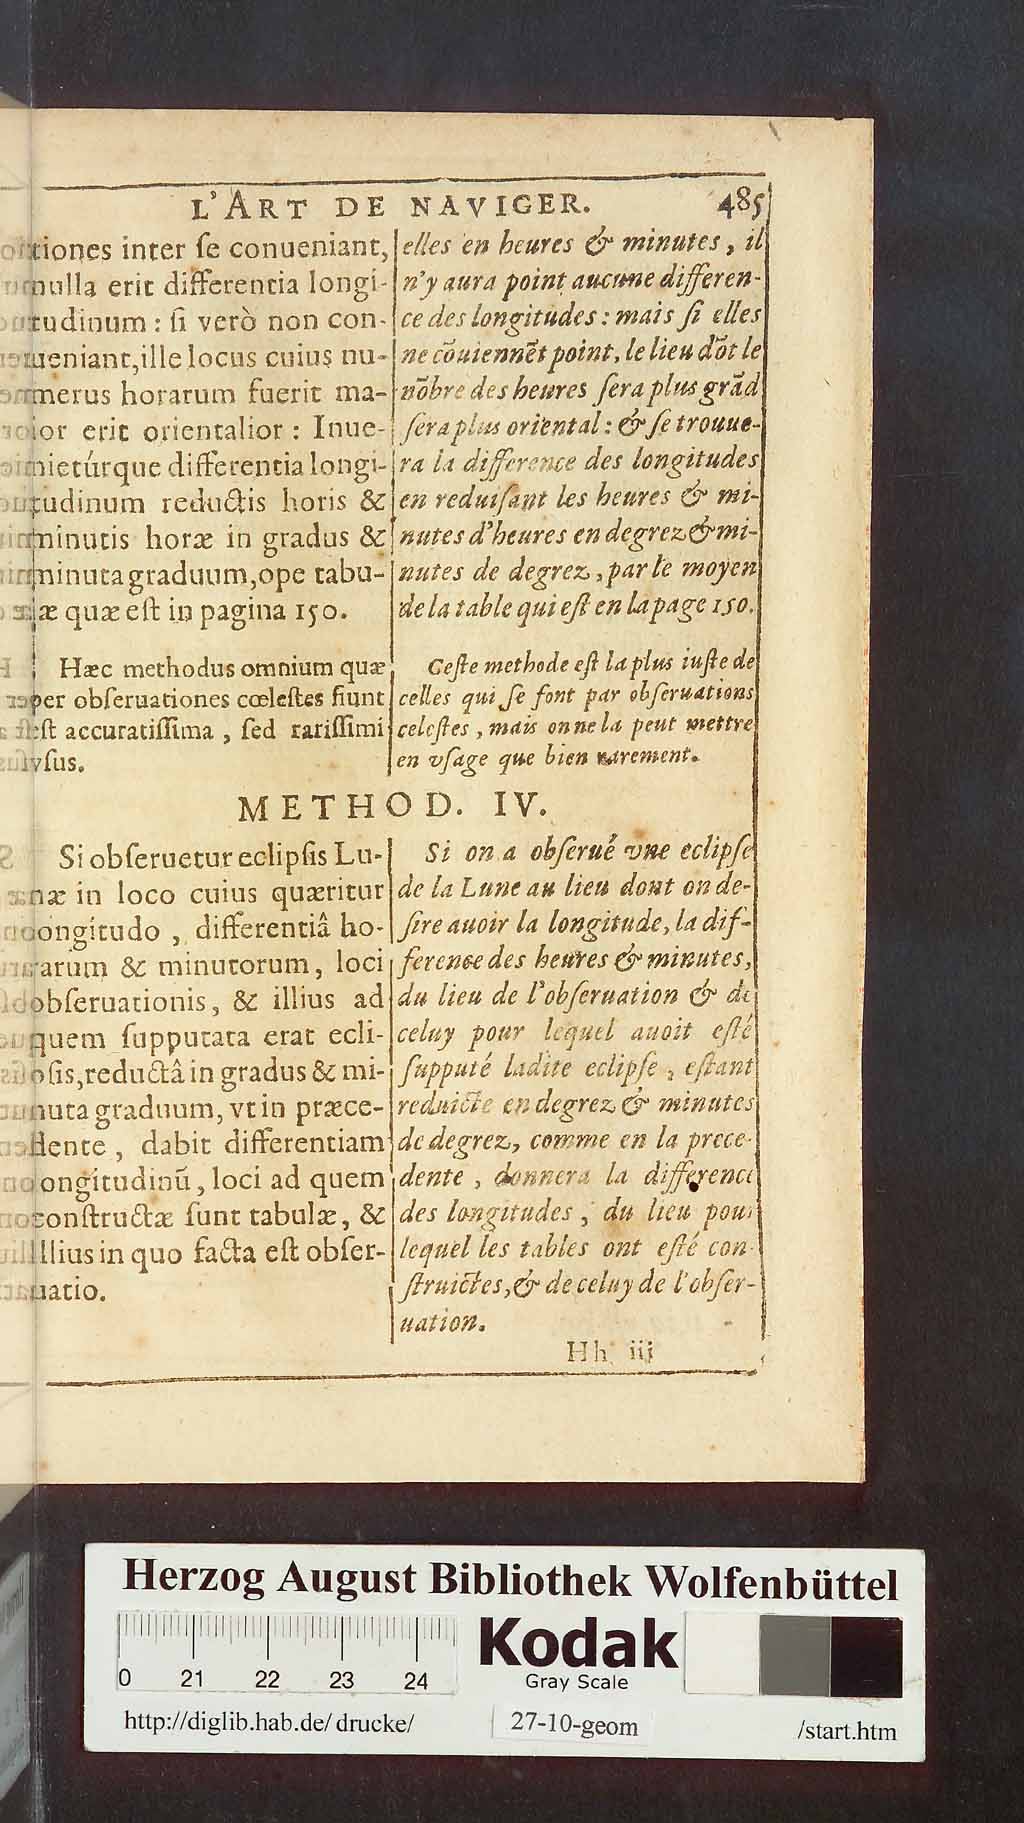 L'ART DE NAVIGER. 485
tiones inter ſe conueniant,
nulla erit differentia longi-
tudinum : ſi verò non con-
ueniant, ille locus cuius nu-
merus horarum fuerit ma-
ior erit orientalior : Inue-
nietúrque differentia longi-
tudinum reductis horis &
minutis horæ in gradus &
minuta graduum, ope tabu-
læ quæ eſt in pagina 150.
Hæc methodus omnium quæ
per obſeruationes cœleſtes fiunt
eſt accuratiſſima , ſed rariſſimi
vſus.
elles en heures & minutes, il
n'y aura point aucune differen-
ce des longitudes : mais ſi elles
ne cõuiennẽt point, le lieu dõt le
nõbre des heures ſera plus grãd
ſera plus oriental : & ſe trouue-
ra la difference des longitudes
en reduiſant les heures & mi-
nutes d'heures en degrez & mi-
nutes de degrez, par le moyen
de la table qui eſt en la page 150.
Ceſte methode eſt la plus iuſte de
celles qui ſe font par obſeruations
celeſtes, mais on ne la peut mettre
en vſage que bien rarement.
METHOD. IV.
Si obſeruetur eclipſis Lu-
næ in loco cuius quæritur
longitudo , differentiâ ho-
rarum & minutorum, loci
obſeruationis, & illius ad
quem ſupputata erat ecli-
pſis, reductâ in gradus & mi-
nuta graduum, vt in præce-
dente , dabit differentiam
longitudinũ, loci ad quem
conſtructæ ſunt tabulæ, &
illius in quo facta eſt obſer-
uatio.
Si on a obſerué vne eclipſe
de la Lune au lieu dont on de-
ſire auoir la longitude, la dif-
ference des heures & minutes,
du lieu de l'obſeruation & de
celuy pour lequel auoit eſté
ſupputé ladite eclipſe , eſtant
reduicte en degrez & minutes
de degrez, comme en la prece-
dente , donnera la difference
des longitudes , du lieu pour
lequel les tables ont eſté con-
ſtruictes, & de celuy de l'obſer-
uation.
Hh iij
Herzog August Bibliothek Wolfenbüttel
0 21 22 23 24
Kodak
Gray Scale
http://diglib.hab.de/drucke/ 27-10-geom /start.htm